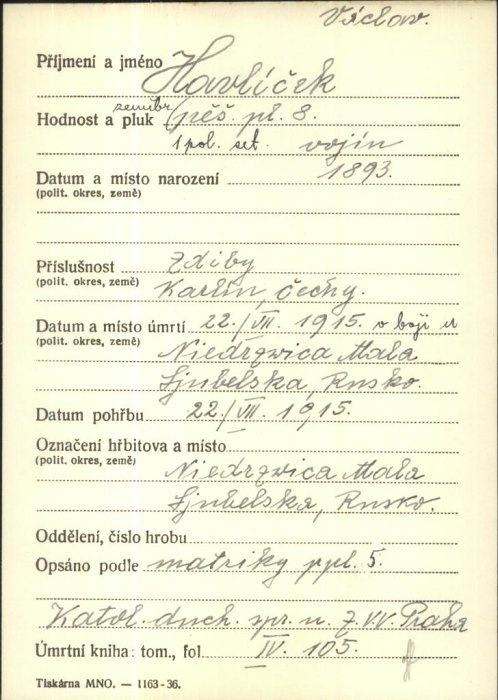 Václav.
Příjmení a jméno Havlíček
Hodnost a pluk zeměbr. pěš. pl. 8.
1 pol. set. vojín
Datum a místo narození 1893.
(polit. okres, země)
Příslušnost Zdiby
(polit. okres, země) Karlín, Čechy.
Datum a místo úmrtí 22./VII. 1915. v boji u
(polit. okres, země) Niedrzwica Mala
Ljubelska, Rusko.
Datum pohřbu 22./VII. 1915.
Označení hřbitova a místo
(polit. okres, země) Niedrzwica Mala
Ljubelska, Rusko.
Oddělení, číslo hrobu
Opsáno podle matriky ppl. 5.
Katol. duch. spr. u Z.V.V. Praha
Úmrtní kniha: tom., fol. IV. 105.
Tiskárna MNO. — 1163-36.